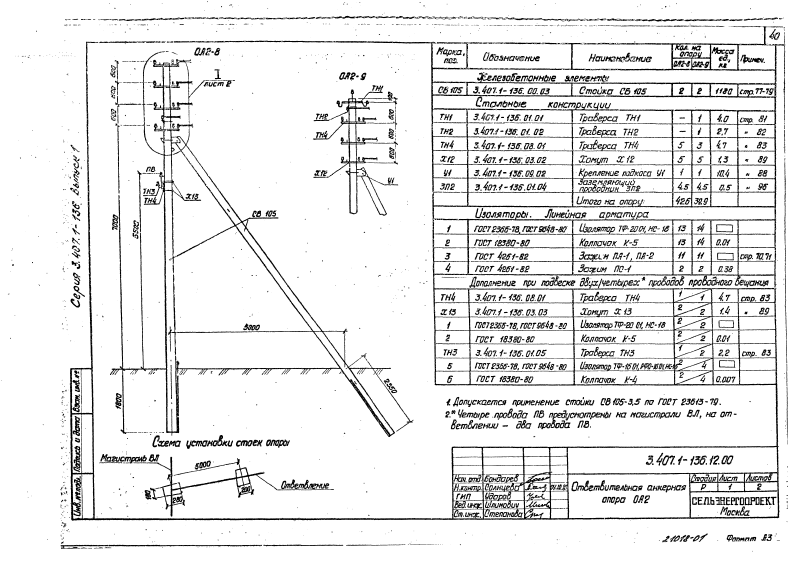 40
Серия 3.407.1-136 Выпуск 1
ОА2-8
1
лист 2
600
600
600
ПВ
ТН3
ТН4
Х13
СВ 105
7000
5500
5000
2350
1800
ОА2-9
ТН1
ТН2
ТН4
Х12
У1
600
600
Схема установки стоек опоры
Магистраль ВЛ
5000
Ответвление
Марка, поз. Обозначение Наименование Кол. на опору ОА2-8 ОА2-9 Масса ед., кг Примеч.
Железобетонные элементы
СВ 105 3.407.1-136.00.03 Стойка СВ 105 2 2 1180 стр. 77-79
Стальные конструкции
ТН1 3.407.1-136.01.01 Траверса ТН1 — 1 4.0 стр. 81
ТН2 3.407.1-136.01.02 Траверса ТН2 — 1 2,7 " 82
ТН4 3.407.1-136.08.01 Траверса ТН4 5 3 4,7 " 83
Х12 3.407.1-136.03.02 Хомут Х12 5 5 1,3 " 89
У1 3.407.1-136.09.02 Крепление подкоса У1 1 1 10,4 " 88
ЗП2 3.407.1-136.01.04 Заземляющий проводник ЗП2 4.5 4.5 0.5 " 96
Итого на опору: 42.6 38.9
Изоляторы. Линейная арматура
1 ГОСТ 2366-78, ГОСТ 9648-80 Изолятор ТФ-20 01, НС-18 13 14
2 ГОСТ 18380-80 Колпачок К-5 13 14 0.01
3 ГОСТ 4261-82 Зажим ПА-1, ПА-2 11 11 стр. 70,71
4 ГОСТ 4261-82 Зажим ПС-1 2 2 0.38
Дополнение при подвеске двух/четырех* проводов проводного вещания
ТН4 3.407.1-136.08.01 Траверса ТН4 1 1 4.7 стр. 83
Х13 3.407.1-136.03.03 Хомут Х13 2 2 1,4 " 89
1 ГОСТ 2366-78, ГОСТ 9648-80 Изолятор ТФ-20 01, НС-18 2 2
2 ГОСТ 18380-80 Колпачок К-5 2 2 0.01
ТН3 3.407.1-136.01.05 Траверса ТН3 1 2 2,2 стр. 83
5 ГОСТ 2366-78, ГОСТ 9648-80 2 4
6 ГОСТ 18380-80 Колпачок К-4 2 4 0.007
1. Допускается применение стойки СВ 105-3,5 по ГОСТ 23613-79.
2.* Четыре провода ПВ предусмотрены на магистрали ВЛ, на от-
ветвлении — два провода ПВ.
Инв. № подл. Подпись и дата Взам. инв. №
Нач. отд. Бондарев
Н. контр. Солнцева
ГИП Ударов
Вед. инж. Шлимович
Ст. инж. Степанова
3.407.1-136.12.00
Ответвительная анкерная
опора ОА2
Стадия Лист Листов
Р 1 2
СЕЛЬЭНЕРГОПРОЕКТ
Москва
21018-01 Формат А3